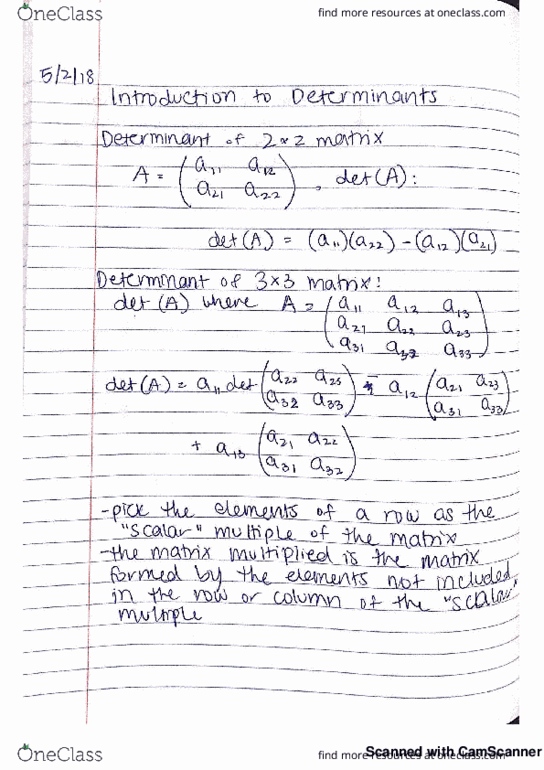 OneClass
find more resources at oneclass.com
5/2/18
Introduction to Determinants
Determinant of 2×2 matrix
A = (a11 a12
a21 a22), det(A):
det(A) = (a11)(a22) - (a12)(a21)
Determinant of 3×3 matrix:
det(A) where A = (a11 a12 a13
a21 a22 a23
a31 a32 a33)
det(A) = a11 det(a22 a23
a32 a33) - a12 (a21 a23
a31 a33)
+ a13 (a21 a22
a31 a32)
-pick the elements of a row as the
"scalar" multiple of the matrix
-the matrix multiplied is the matrix
formed by the elements not included
in the row or column of the "scalar"
multiple
OneClass
find more resources at oneclass.com
Scanned with CamScanner